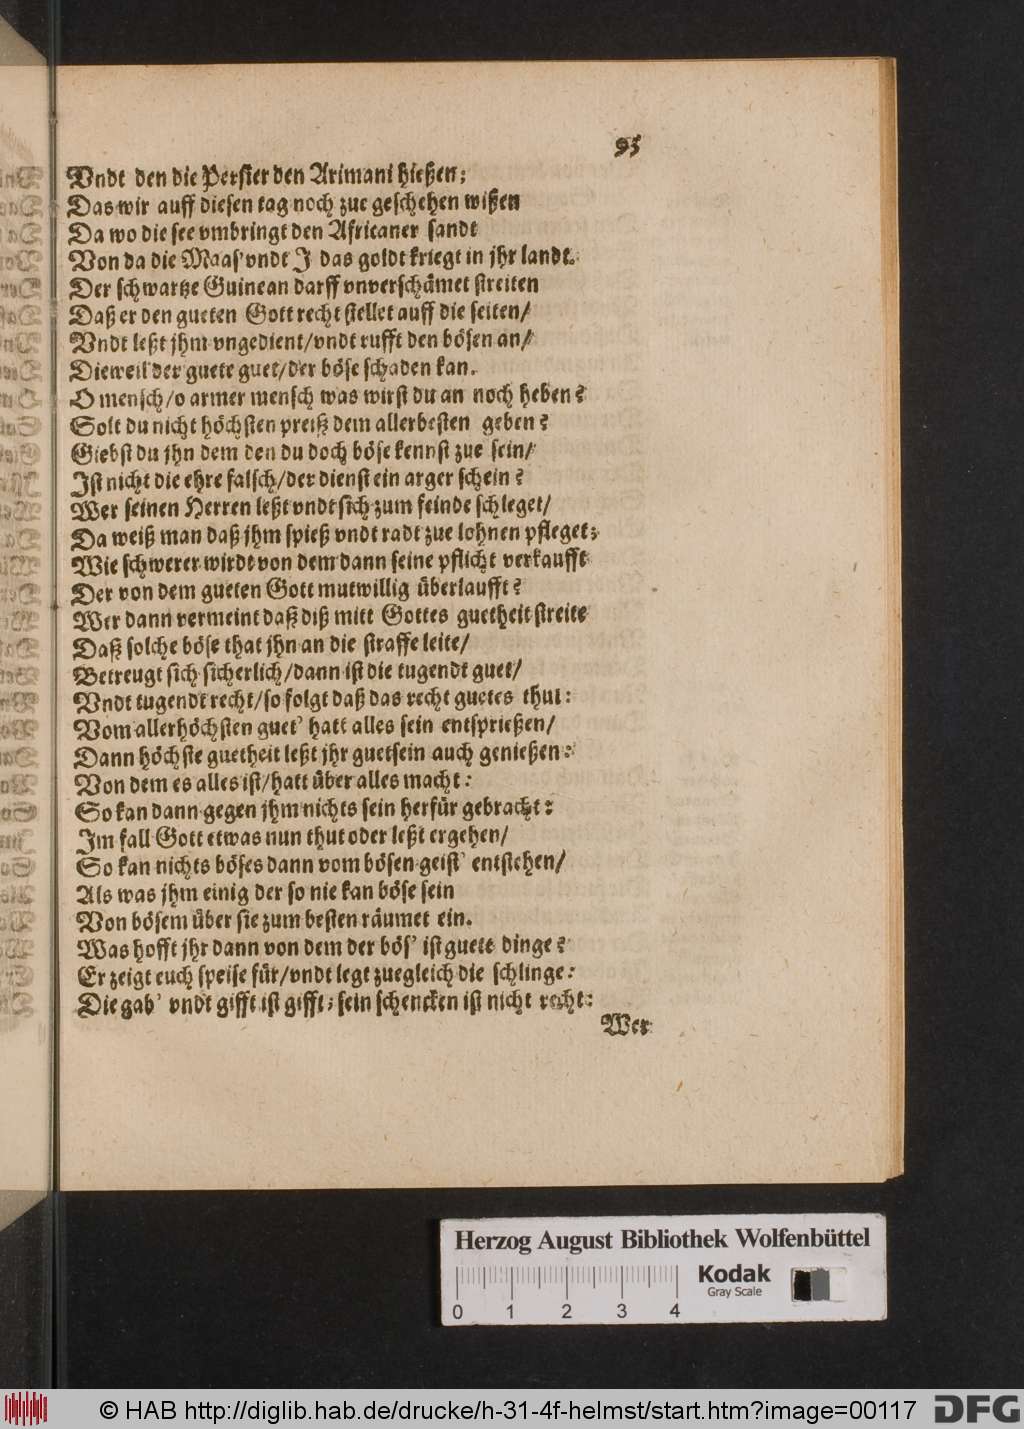 95
Vndt den die Persier den Arimani hießen;
Das wir auff diesen tag noch zue geschehen wißen
Da wo die see vmbringt den Africaner sandt
Von da die Maas' vndt J das goldt kriegt in jhr landt.
Der schwartze Guinean darff vnverschämet streiten
Daß er den gueten Gott recht stellet auff die seiten/
Vndt leßt jhm vngedient/vndt rufft den bösen an/
Dieweil der guete guet/der böse schaden kan.
O mensch/o armer mensch was wirst du an noch heben?
Solt du nicht höchsten preiß dem allerbesten geben?
Giebst du jhn dem den du doch böse kennst zue sein/
Jst nicht die ehre falsch/der dienst ein arger schein?
Wer seinen Herren leßt vndt sich zum feinde schleget/
Da weiß man daß jhm spieß vndt radt zue lohnen pfleget;
Wie schwerer wirdt von dem dann seine pflicht verkaufft
Der von dem gueten Gott mutwillig überlaufft?
Wer dann vermeint daß diß mitt Gottes guetheit streite
Daß solche böse that jhn an die straffe leite/
Betreugt sich sicherlich/dann ist die tugendt guet/
Vndt tugendt recht/so folgt daß das recht guetes thut:
Vom allerhöchsten guet' hatt alles sein entsprießen/
Dann höchste guetheit leßt jhr guetsein auch genießen:
Von dem es alles ist/hatt über alles macht:
So kan dann gegen jhm nichts sein herfür gebracht:
Jm fall Gott etwas nun thut oder leßt ergehen/
So kan nichts böses dann vom bösen geist' entstehen/
Als was jhm einig der so nie kan böse sein
Von bösem über sie zum besten räumet ein.
Was hofft jhr dann von dem der bös' ist guete dinge?
Er zeigt euch speise für/vndt legt zuegleich die schlinge:
Die gab' vndt gifft ist gifft; sein schencken ist nicht recht:
Wer
Herzog August Bibliothek Wolfenbüttel
Kodak
Gray Scale
0 1 2 3 4
© HAB http://diglib.hab.de/drucke/h-31-4f-helmst/start.htm?image=00117
DFG